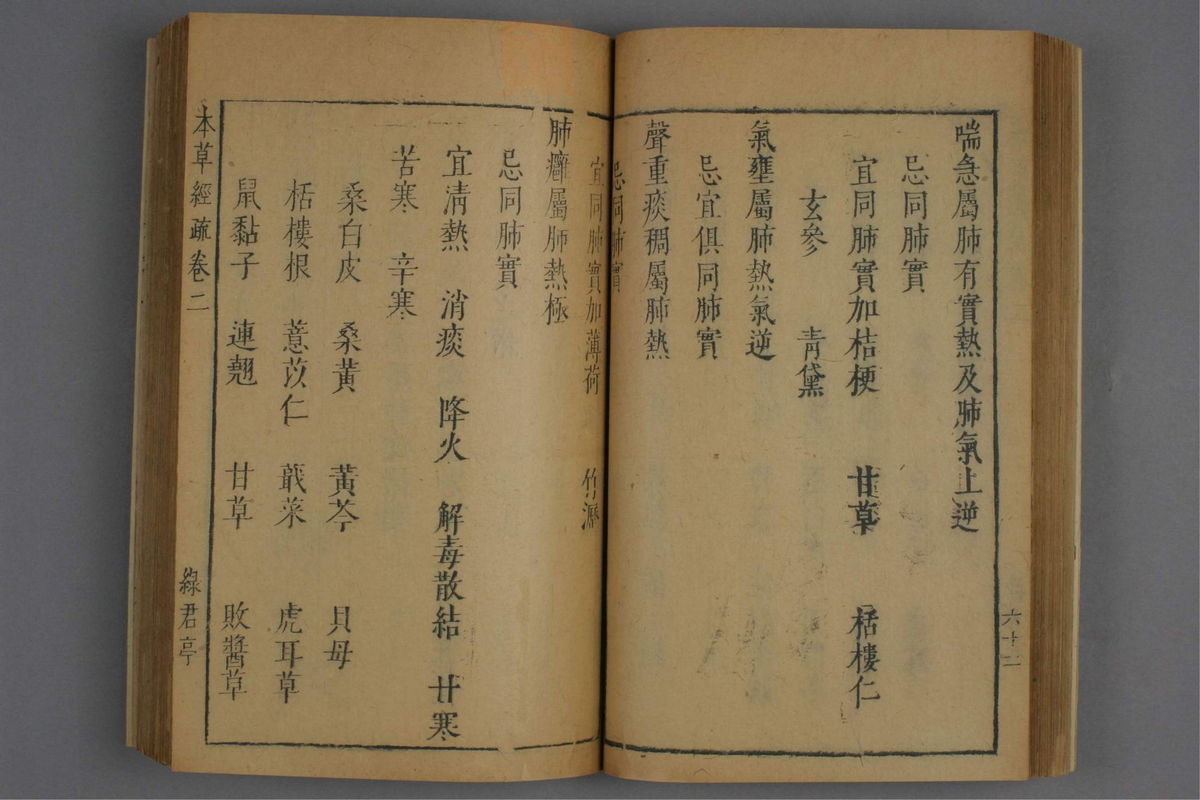 喘急屬肺有實熱及肺氣上逆
忌同肺實
宜同肺實加桔梗 甘草 栝樓仁
玄參 青黛
氣壅屬肺熱氣逆
忌宜俱同肺實
聲重痰稠屬肺熱
忌同肺實
宜同肺實加薄荷 竹瀝
肺癰屬肺熱極
忌同肺實
宜清熱 消痰 降火 解毒散結 甘寒
苦寒 辛寒
桑白皮 桑黃 黃芩 貝母
栝樓根 薏苡仁 蕺菜 虎耳草
鼠黏子 連翹 甘草 敗醬草
本草經疏卷二 綠君亭
六十二